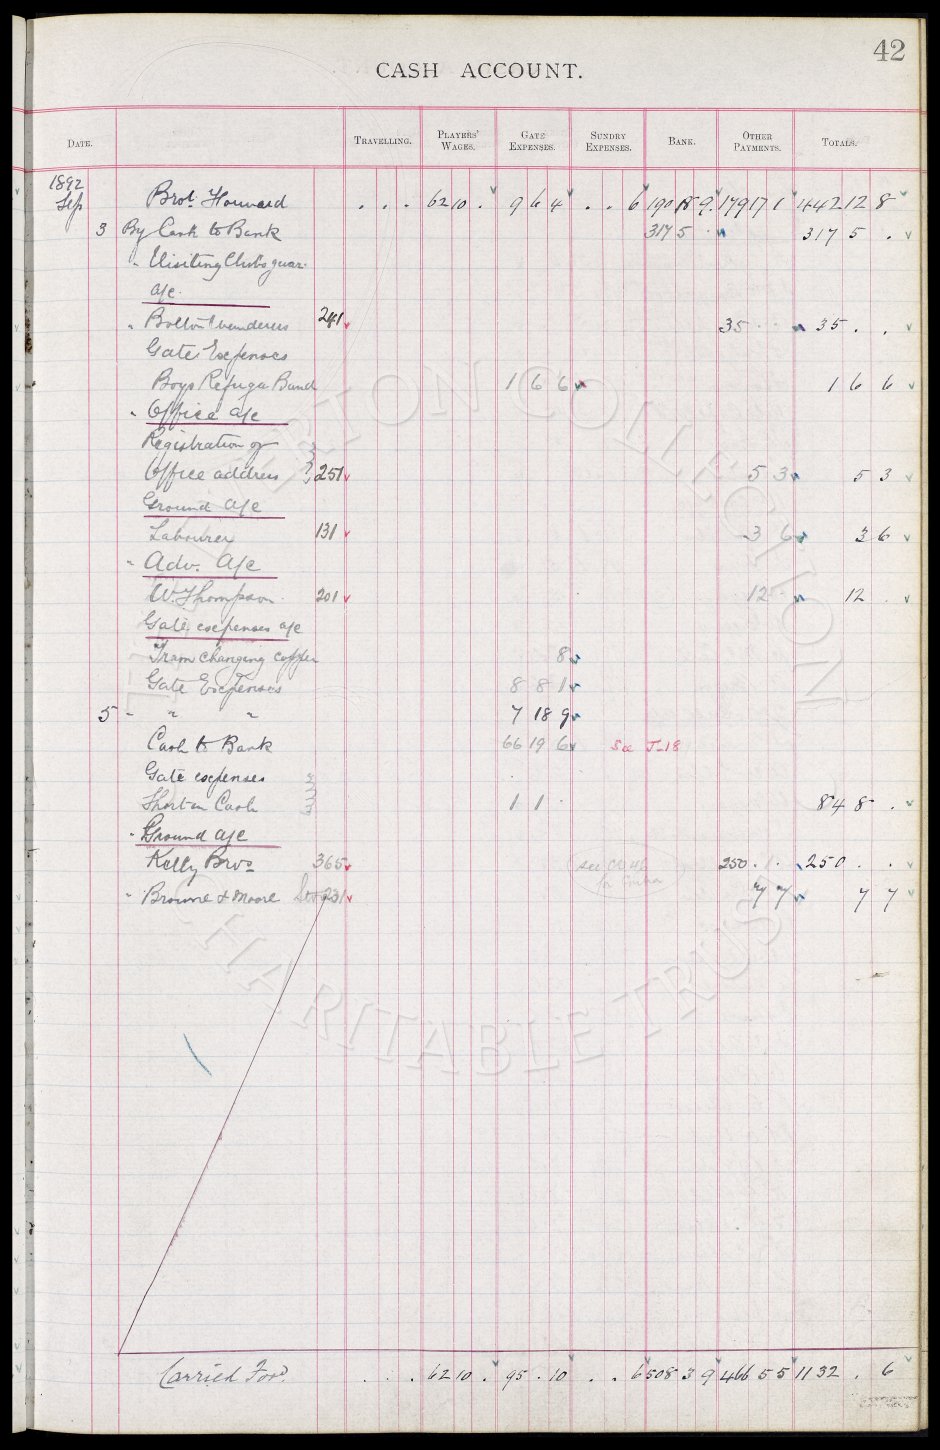 42
CASH ACCOUNT.
DATE. TRAVELLING. PLAYERS' WAGES. GATE EXPENSES. SUNDRY EXPENSES. BANK. OTHER PAYMENTS. TOTALS.
1892
Sep Brot. Forward . . . 62 10 . 9 6 4 . . 6 190 18 9 179 17 1 442 12 8
3 By Cash to Bank 317 5 . 317 5 .
" Visiting Clubs guar.
a/c.
" Bolton Wanderers 241 35 . . 35 . .
Gate Expenses
Boys Refuge Band 1 6 6 1 6 6
" Office a/c
Registration of
Office address 251 5 3 5 3
Ground a/c
Labourer 131 3 6 3 6
" Adv. a/c
W. Thompson 201 12 . 12 .
Gate expenses a/c
Tram changing copper 8
Gate Expenses 8 8 1
5 " " " 7 18 9
Cash to Bank 66 19 6 See J-18
Gate expenses
Short in Cash 1 1 . 84 8 .
" Ground a/c
Kelly Bros 365 250 . . 250 . .
see
for
" Browne & Moore 231 7 7 7 7
Carried For'd. . . . 62 10 . 95 . 10 . . 6 508 3 9 466 5 5 1132 . 6
EVERTON COLLECTION
CHARITABLE TRUST